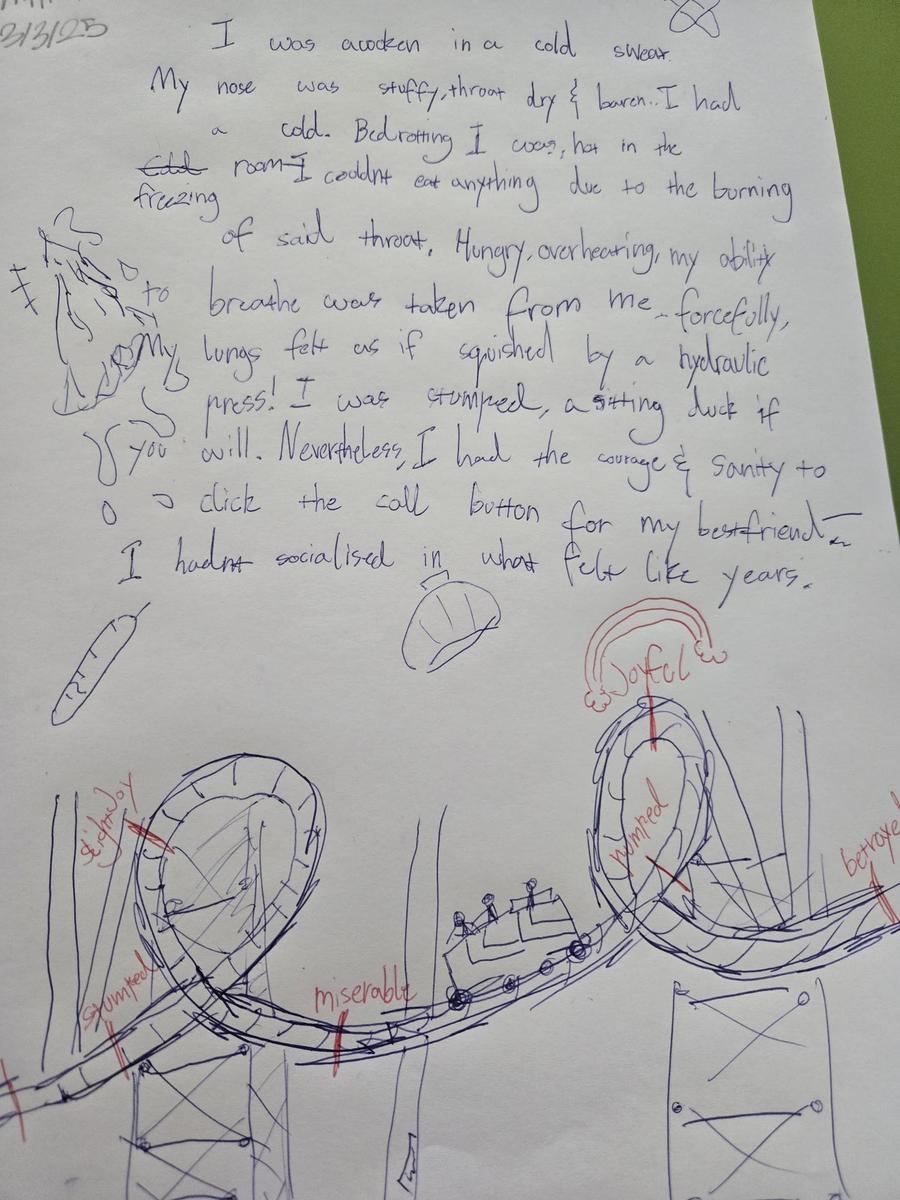 3/3/25
I was acoken in a cold swear.
My nose was stuffy, throat dry & baren.. I had
a cold. Bedrotting I was, hot in the
Cold room-I couldnt eat anything due to the burning
freezing
of said throat. Hungry, overheating, my ability
to breathe was taken from me - forcefully,
My lungs felt as if squished by a hydraulic
press! I was stumped, a sitting duck if
you will. Nevertheless, I had the courage & sanity to
click the call button for my bestfriend-
I hadnt socialised in what felt like years.
Joyful
pumped
betrayed
stumped
miserable